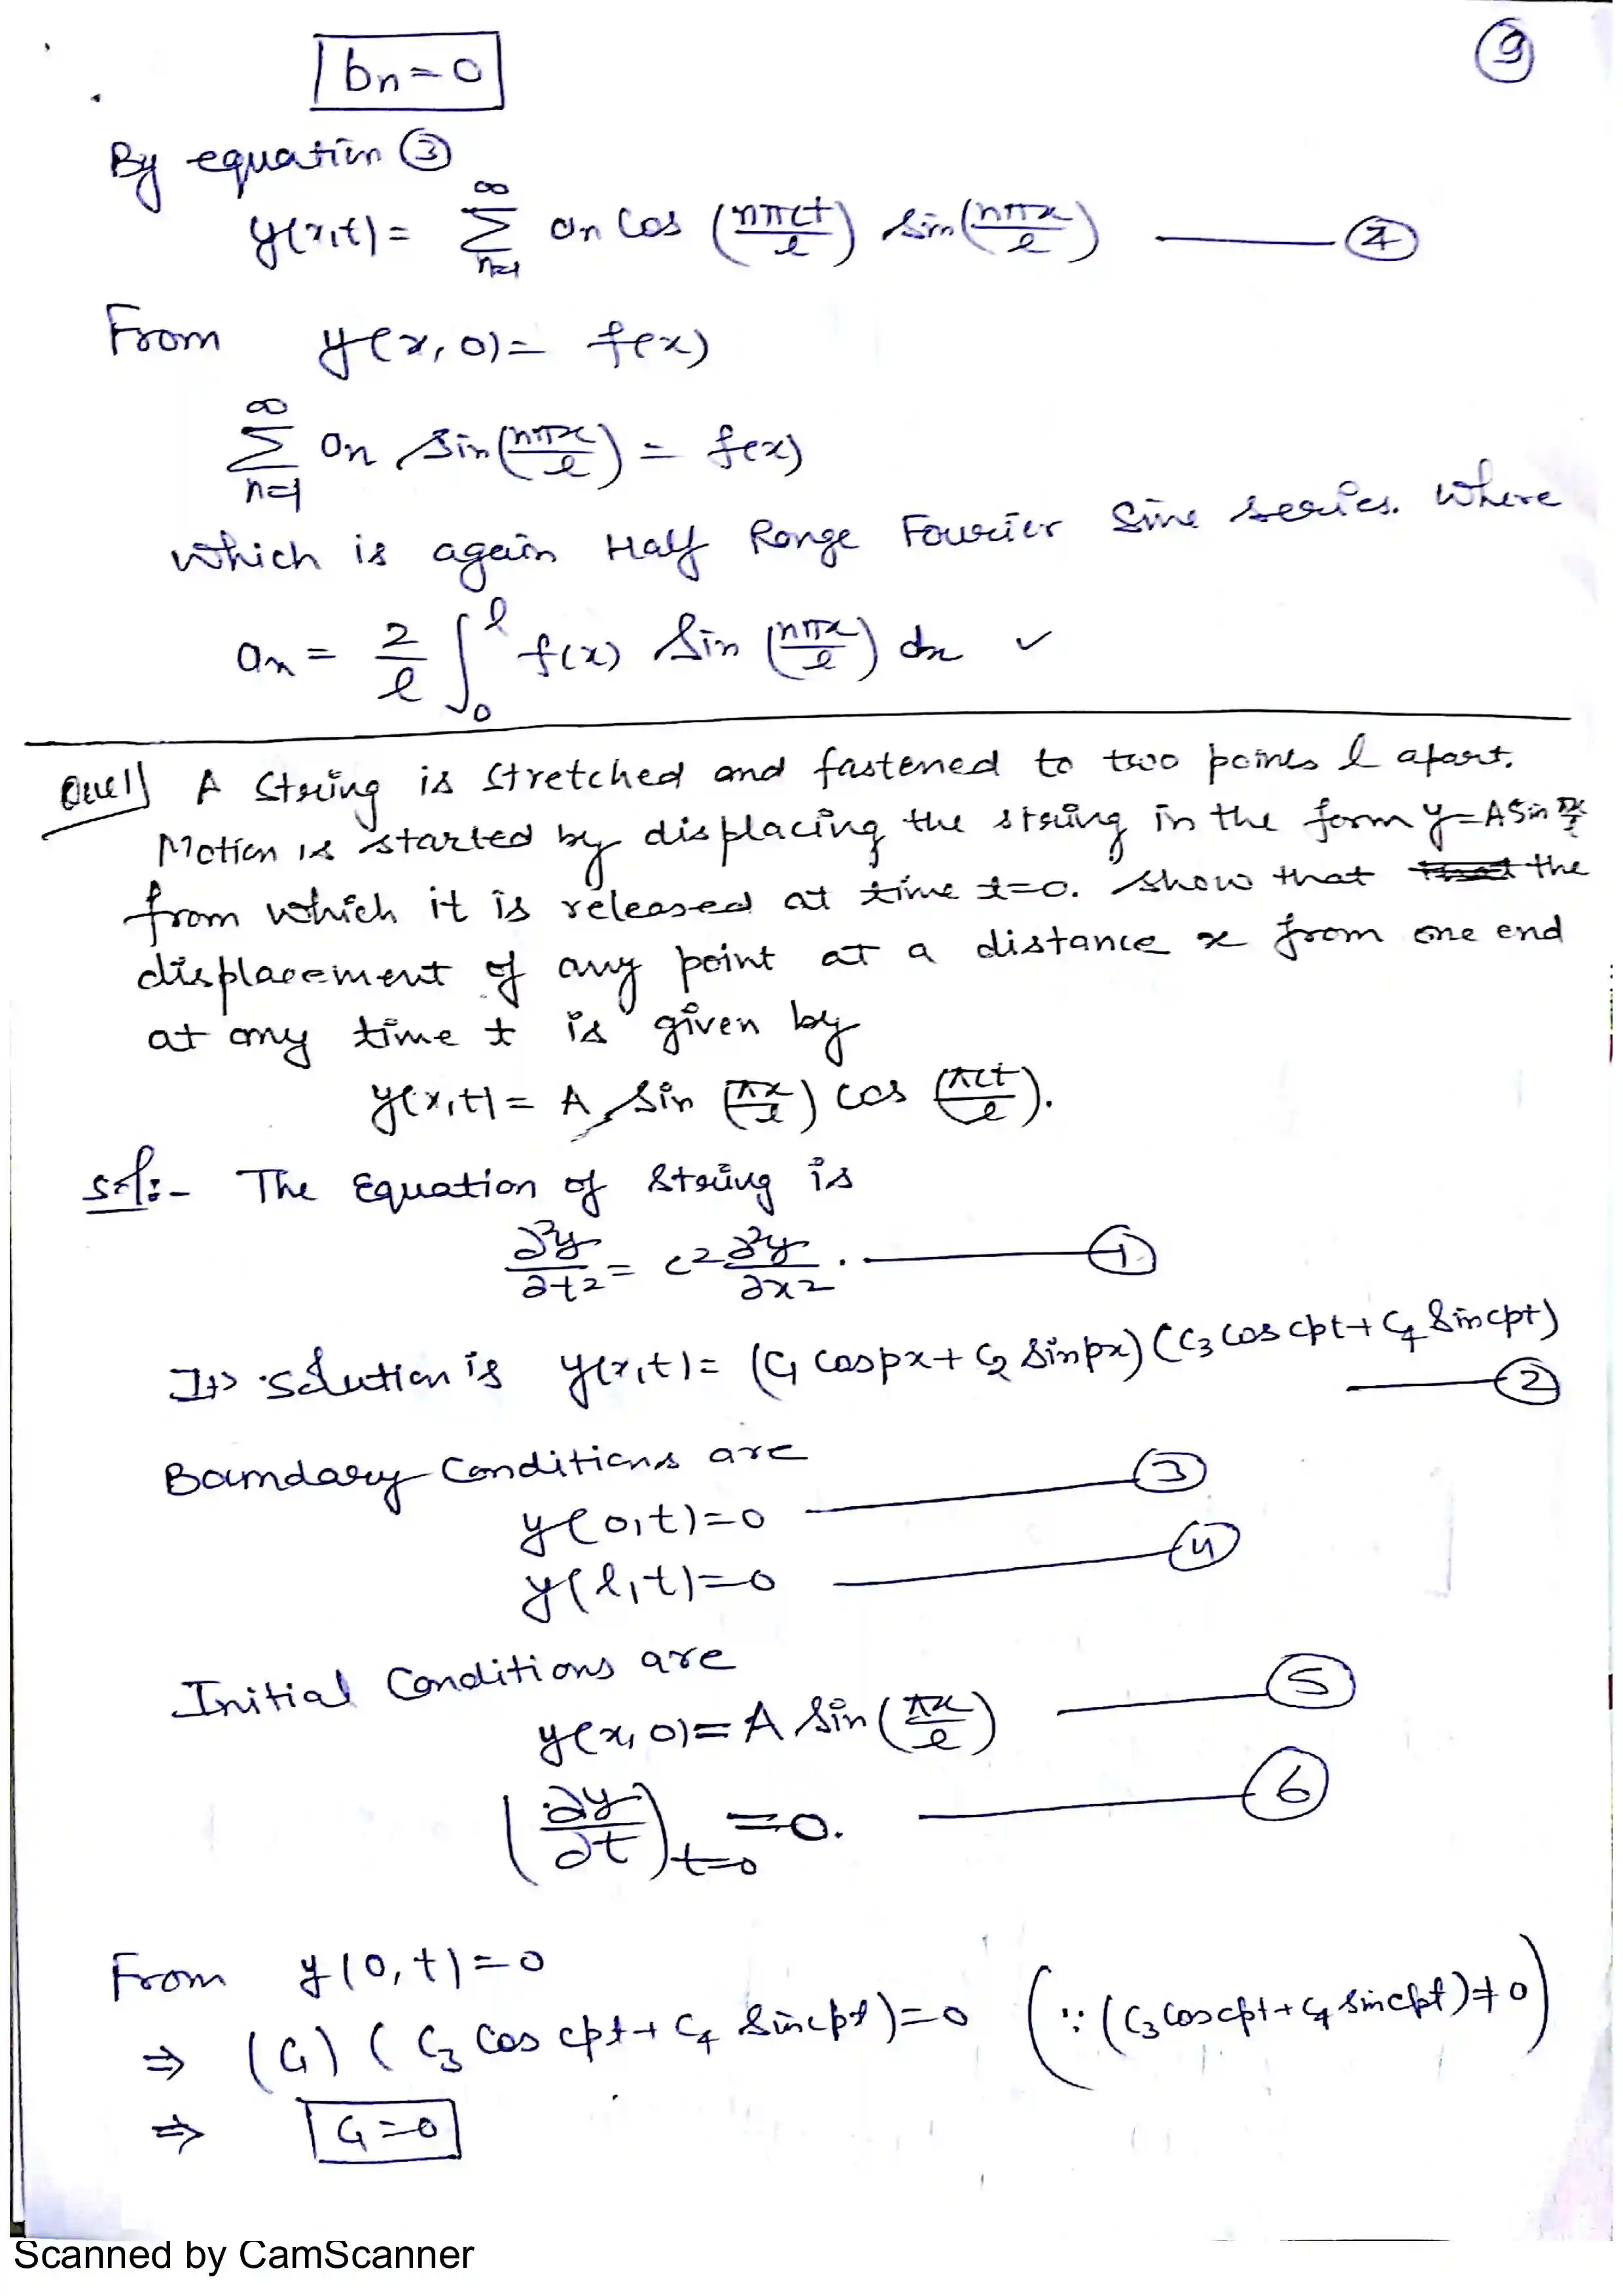 bn=0
9
By equation ③
y(x,t) = ∞ Σ n=1 an Cos (nπct/l) Sin(nπx/l) —— ⑦
From y(x,0) = f(x)
∞ Σ n=1 an Sin(nπx/l) = f(x)
which is again Half Range Fourier Sine series. Where
an = 2/l ∫₀ˡ f(x) Sin (nπx/l) dx ✓
Que1) A String is Stretched and fastened to two points l apart.
Motion is started by displacing the string in the form y=A Sin πx/l
from which it is released at time t=0. Show that the
displacement of any point at a distance x from one end
at any time t is given by
y(x,t) = A Sin (πx/l) cos (πct/l).
Sol:- The Equation of String is
∂²y/∂t² = c² ∂²y/∂x². —— ①
Its Solution is y(x,t) = (C₁ cospx + C₂ Sinpx) (C₃ cos cpt + C₄ Sincpt)
—— ②
Boundary Conditions are
y(0,t)=0 —— ③
y(l,t)=0 —— ④
Initial Conditions are
y(x,0)= A Sin (πx/l) —— ⑤
(∂y/∂t)t=0 =0. —— ⑥
From y(0,t)=0
⇒ (C₁) (C₃ Cos cpt + C₄ Sincpt)=0 (∵ (C₃ Coscpt + C₄ Sincpt) ≠ 0)
⇒ C₁=0
Scanned by CamScanner